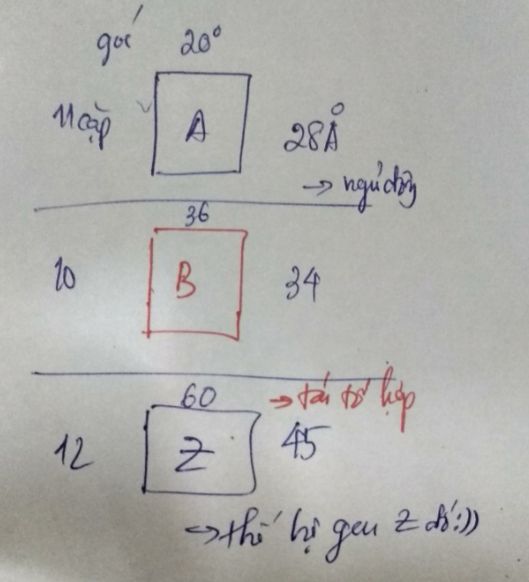 góc 20°
11 cặp A 28Å
→ ngủ đông
36
10 B 34
60 → tái tổ hợp
12 Z 45
→ thế hệ gen Z đó :))